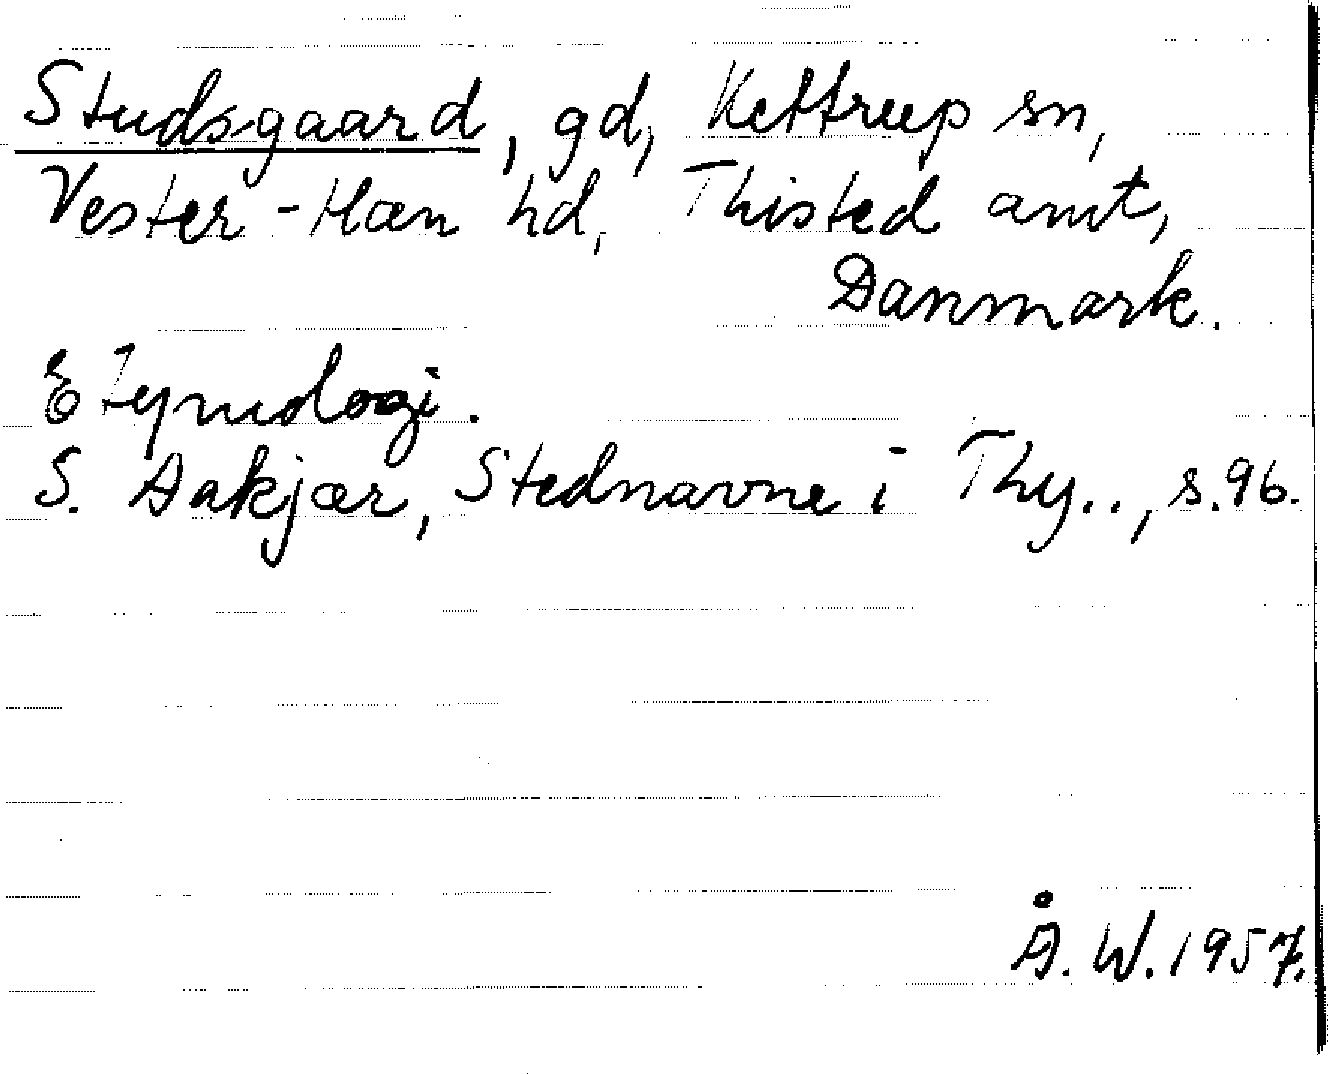 Studsgaard, gd, Kettrup sn,
Vester-Han hd, Thisted amt,
Danmark.
Etymologi.
S. Aakjær, Stednavne i Thy.., s.96.
Å.W.1957.